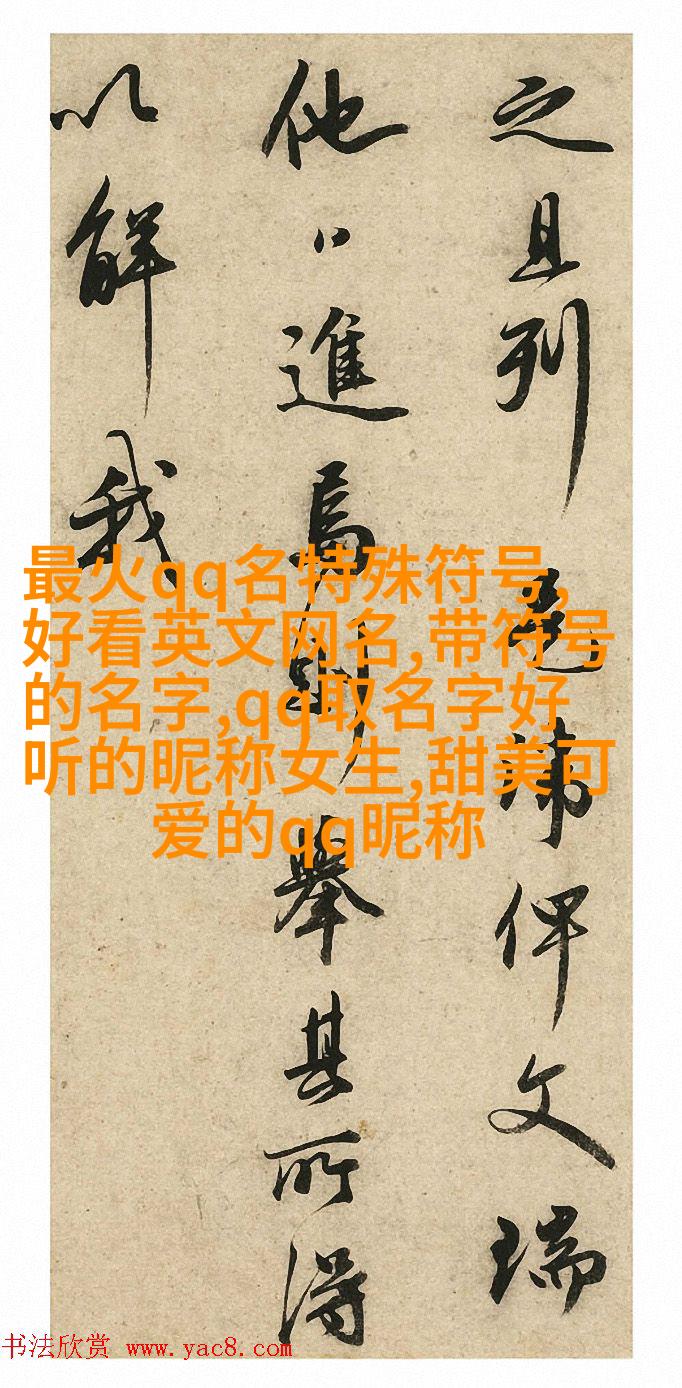 之且列 俾文瑞
他 進焉則舉其所得
以解我
最火qq名特殊符号,
好看英文网名,带符号
的名字,qq取名字好
听的昵称女生,甜美可
爱的qq昵称
书法欣赏 www.yac8.com